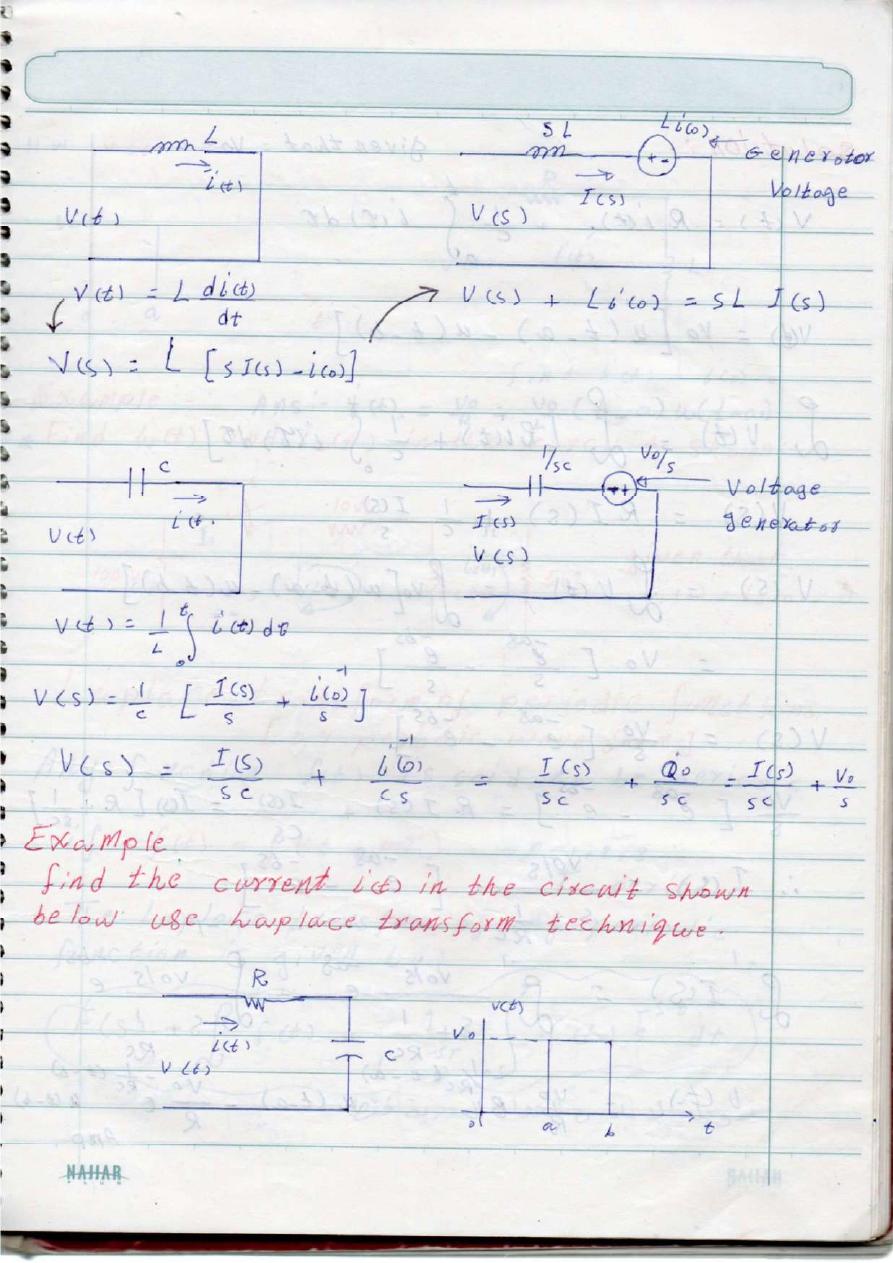 L
i(t)
V(t)
SL
Li(0)
Generator
Voltage
I(s)
V(s)
V(t) = L di(t)/dt
V(s) + Li(0) = SL I(s)
V(s) = L [sI(s) - i(0)]
C
i(t)
V(t)
1/sc
V0/s
Voltage
generator
I(s)
V(s)
V(t) = 1/L ∫₀ᵗ i(t) dt
V(s) = 1/c [ I(s)/s + i⁻¹(0)/s ]
V(s) = I(s)/sc + i⁻¹(0)/cs = I(s)/sc + Q0/sc = I(s)/sc + V0/s
Example
find the current i(t) in the circuit shown
below use Laplace transform technique.
R
i(t)
V(t)
C
v(t)
V0
0 a b t
NAJJAR